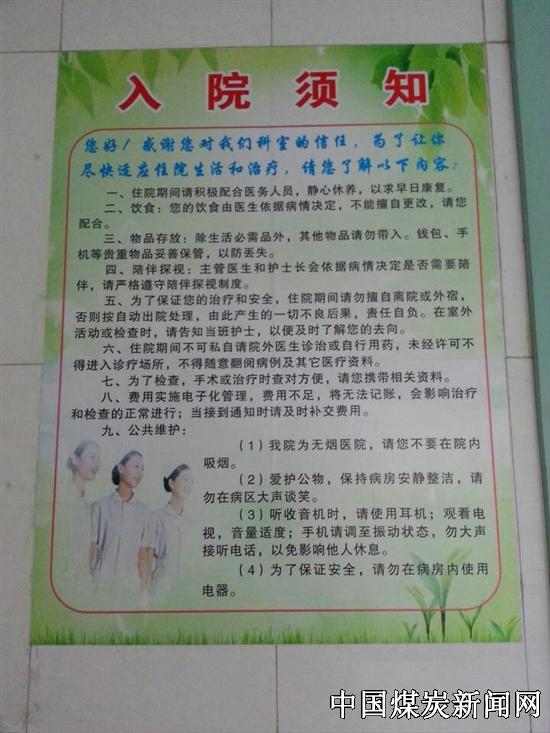 入院须知
您好！感谢您对我们科室的信任，为了让你
尽快适应住院生活和治疗，请您了解以下内容：
一、住院期间请积极配合医务人员，静心休养，以求早日康复。
二、饮食：您的饮食由医生依据病情决定，不能擅自更改，请您
配合。
三、物品存放：除生活必需品外，其他物品请勿带入。钱包、手
机等贵重物品妥善保管，以防丢失。
四、陪伴探视：主管医生和护士长会依据病情决定是否需要陪
伴，请严格遵守陪伴探视制度。
五、为了保证您的治疗和安全，住院期间请勿擅自离院或外宿，
否则按自动出院处理，由此产生的一切不良后果，责任自负。在室外
活动或检查时，请告知当班护士，以便及时了解您的去向。
六、住院期间不可私自请院外医生诊治或自行用药，未经许可不
得进入诊疗场所，不得随意翻阅病例及其它医疗资料。
七、为了检查，手术或治疗时查对方便，请您携带相关资料。
八、费用实施电子化管理，费用不足，将无法记账，会影响治疗
和检查的正常进行；当接到通知时请及时补交费用。
九、公共维护：
（1）我院为无烟医院，请您不要在院内
吸烟。
（2）爱护公物，保持病房安静整洁，请
勿在病区大声谈笑。
（3）听收音机时，请使用耳机；观看电
视，音量适度；手机请调至振动状态，勿大声
接听电话，以免影响他人休息。
（4）为了保证安全，请勿在病房内使用
电器。
中国煤炭新闻网